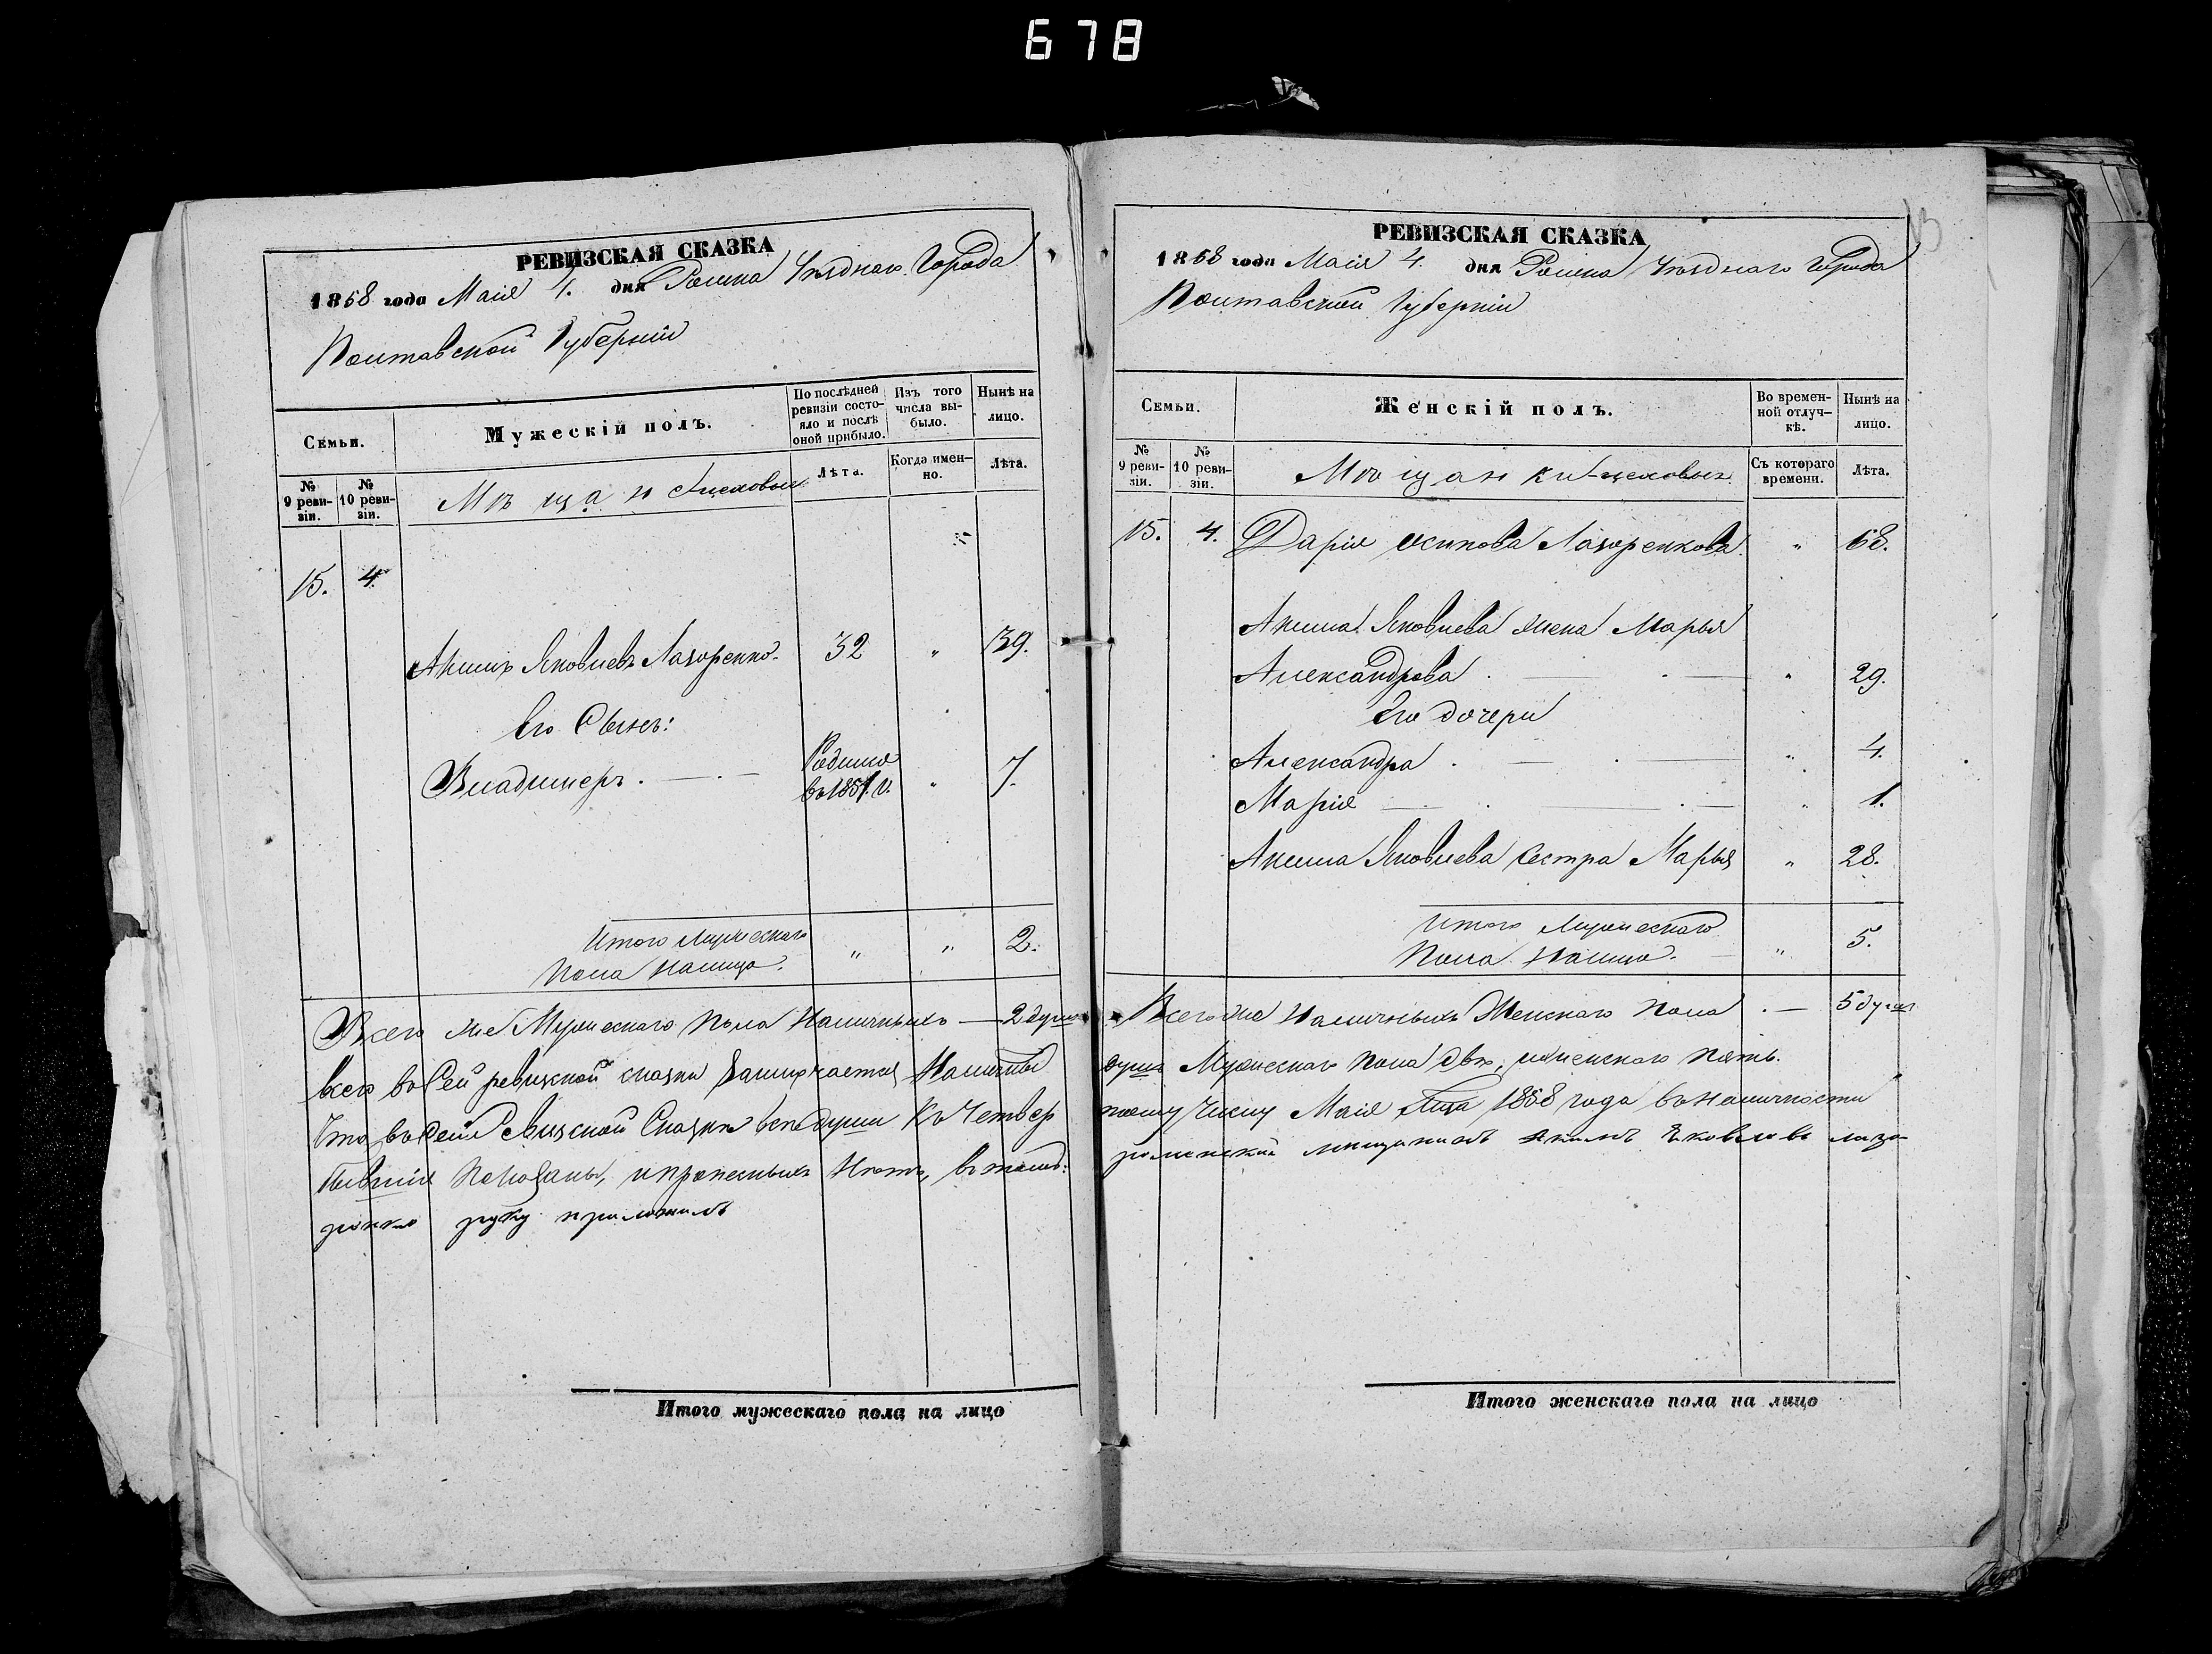 678
РЕВИЗСКАЯ СКАЗКА
1858 года Маія 4. дня Ромна Уѣзднаго Города
Полтавской Губерніи
Семьи.
Мужескій полъ.
По послѣдней ревизіи состояло и послѣ оной прибыло.
Изъ того числа выбыло.
Нынѣ на лицо.
№ 9 ревизіи.
№ 10 ревизіи.
Мѣщан цеховые
Лѣта.
Когда именно.
Лѣта.
15. 4.
Акимъ Яковлевъ Лазоренко. 32 „ 39.
Его Сынъ:
Владимеръ. Родился въ 1851. г. „ 7.
Итого Мужескаго
Пола Налицо. „ „ 2.
Всего же Мужескаго Пола Наличныхъ — 2 души
всего въ Сей ревизкой сказки Заключается Наличныхъ
Что въ сей Ревизской Сказке все души Къ Четвер
бывшіе Показаны, и прописныхъ Нѣтъ, въ томъ:
ренко руку приложилъ
Итого мужескаго пола на лицо
РЕВИЗСКАЯ СКАЗКА
1858 года Маія 4. дня Ромна Уѣзднаго Города
Полтавской Губерніи
Семьи.
Женскій полъ.
Во временной отлучкѣ.
Нынѣ на лицо.
№ 9 ревизіи.
№ 10 ревизіи.
Мѣщанки цеховыхъ
Съ котораго времени.
Лѣта.
15. 4. Дарія Осипова Лазоренкова. „ 68.
Акима Яковлева жена Марья
Александрова „ 29.
Его дочери
Александра „ 4.
Марія „ 1.
Акима Яковлева Сестра Марья „ 28.
Итого Мужескаго
Пола Налицо. „ 5.
Всего же Наличныхъ Женскаго Пола — 5 душъ
душъ Мужескаго Пола двѣ, и женскаго пять.
тому Числу Маія 1858 года въ наличности
роменский мещанинъ Акимъ Яковлевъ лазо-
Итого женскаго пола на лицо